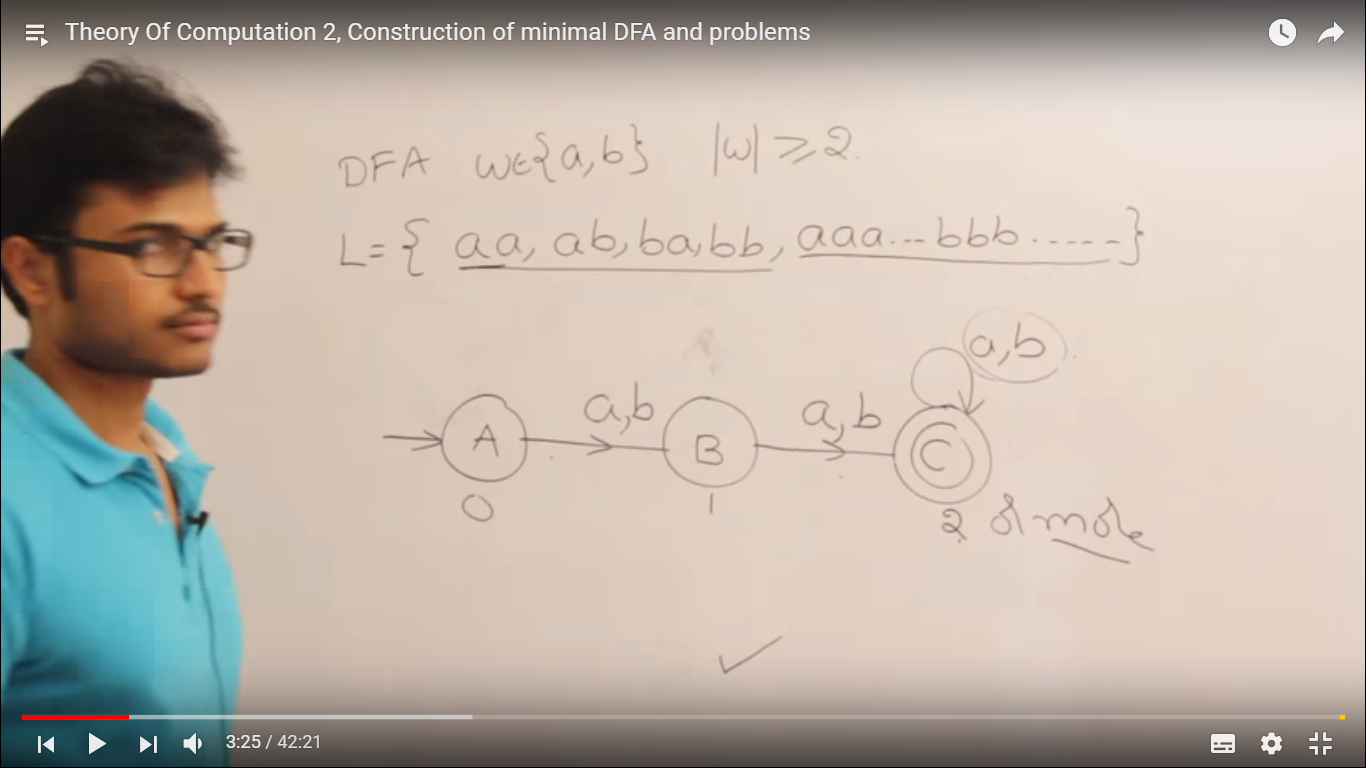 Theory Of Computation 2, Construction of minimal DFA and problems
DFA w∈{a,b} |w| ≥ 2
L = { aa, ab, ba, bb, aaa...bbb...... }
a,b
a,b a,b
A B C
0 1
2 or more
3:25 / 42:21